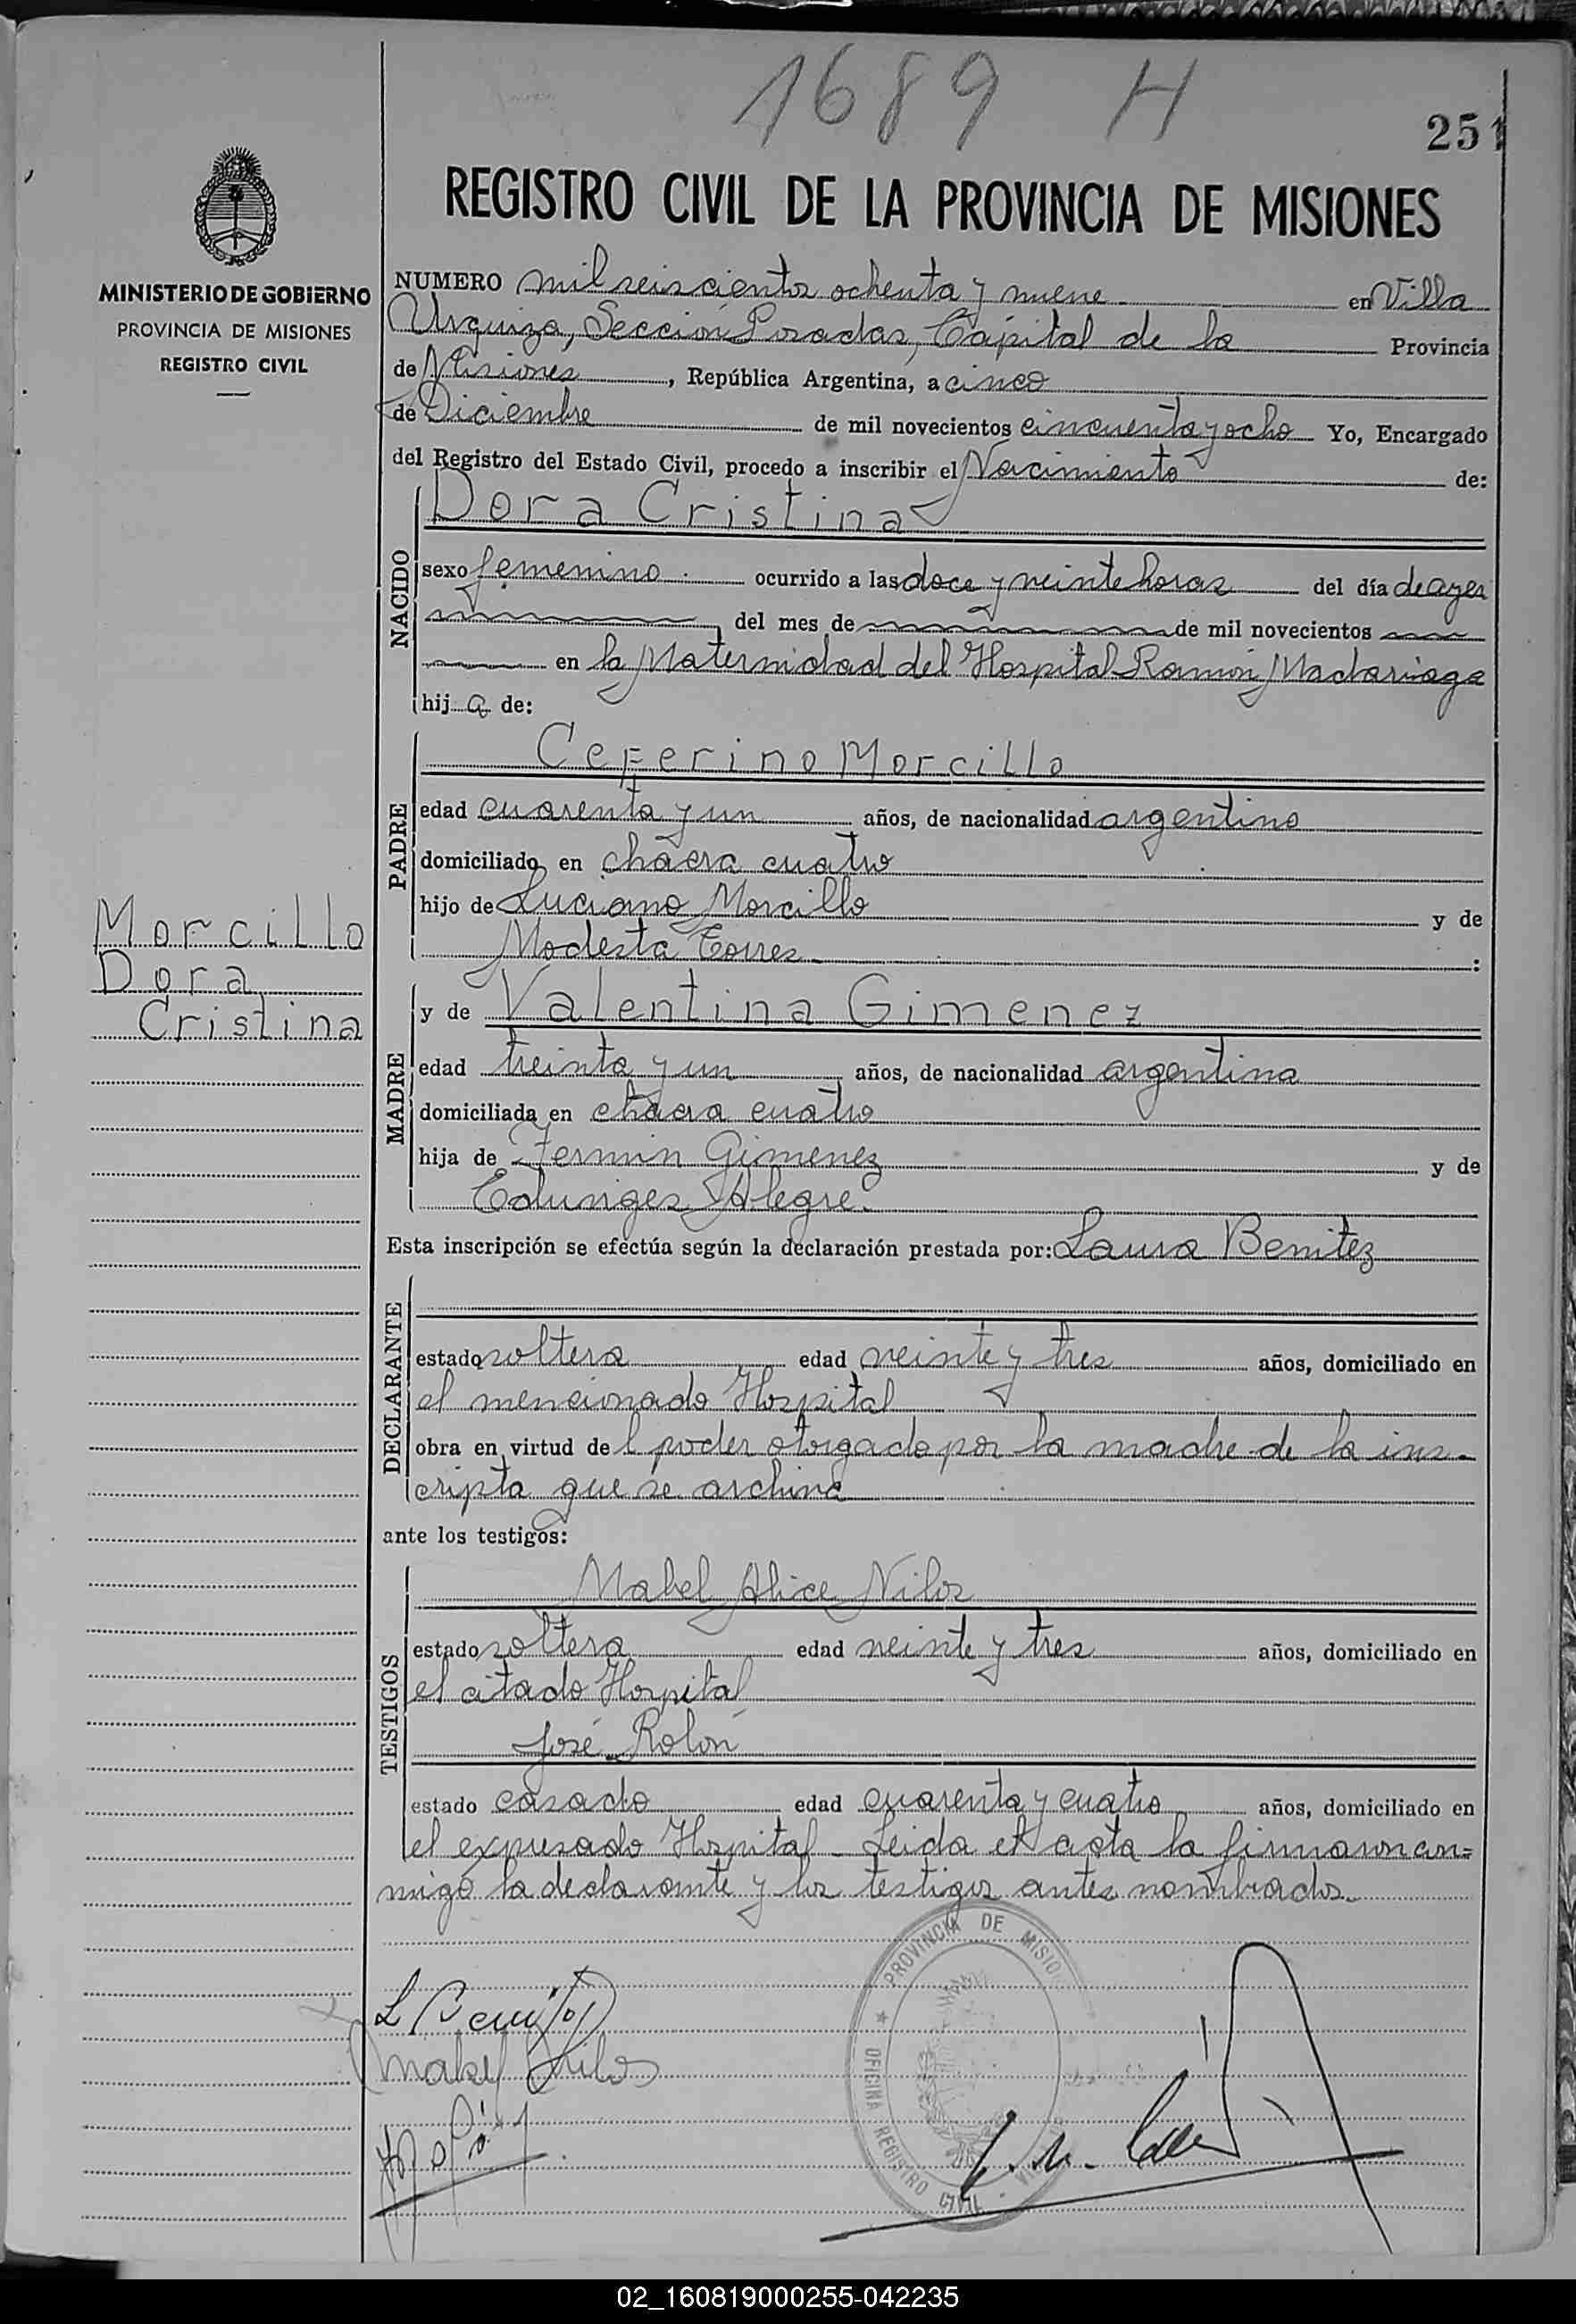 1689 H
251
REGISTRO CIVIL DE LA PROVINCIA DE MISIONES
MINISTERIO DE GOBIERNO
PROVINCIA DE MISIONES
REGISTRO CIVIL
NUMERO mil seiscientos ochenta y nueve en Villa
Urquiza, Sección Posadas, Capital de la Provincia
de Misiones, República Argentina, a cinco
de Diciembre de mil novecientos cincuenta y ocho Yo, Encargado
del Registro del Estado Civil, procedo a inscribir el Nacimiento de:
NACIDO
Dora Cristina
sexo femenino. ocurrido a las doce y veinte horas del día de ayer
, del mes de de mil novecientos
en la Maternidad del Hospital Ramón Madariaga
hij a de:
PADRE
Ceferino Morcillo
edad cuarenta y un años, de nacionalidad argentino
domiciliado en chacra cuatro
hijo de Luciano Morcillo y de
Modesta Torres :
Morcillo
Dora
Cristina
MADRE
y de Valentina Gimenez
edad treinta y un años, de nacionalidad argentina
domiciliada en chacra cuatro
hija de Fermin Gimenez y de
Eduviges Alegre.
Esta inscripción se efectúa según la declaración prestada por: Laura Benitez
DECLARANTE
estado soltera edad veinte y tres años, domiciliado en
el mencionado Hospital
obra en virtud de l poder otorgado por la madre de la ins-
cripta que se archiva
ante los testigos:
TESTIGOS
Mabel Alice Nilos
estado soltera edad veinte y tres años, domiciliado en
el citado Hospital
José Rolón
estado casado edad cuarenta y cuatro años, domiciliado en
el expresado Hospital - Leida el acta la firmaron con=
migo la declarante y los testigos antes nombrados.
PROVINCIA DE MISIO
OFICINA REGISTRO CIVIL
L Benitez
Mabel Nilos
02_160819000255-042235